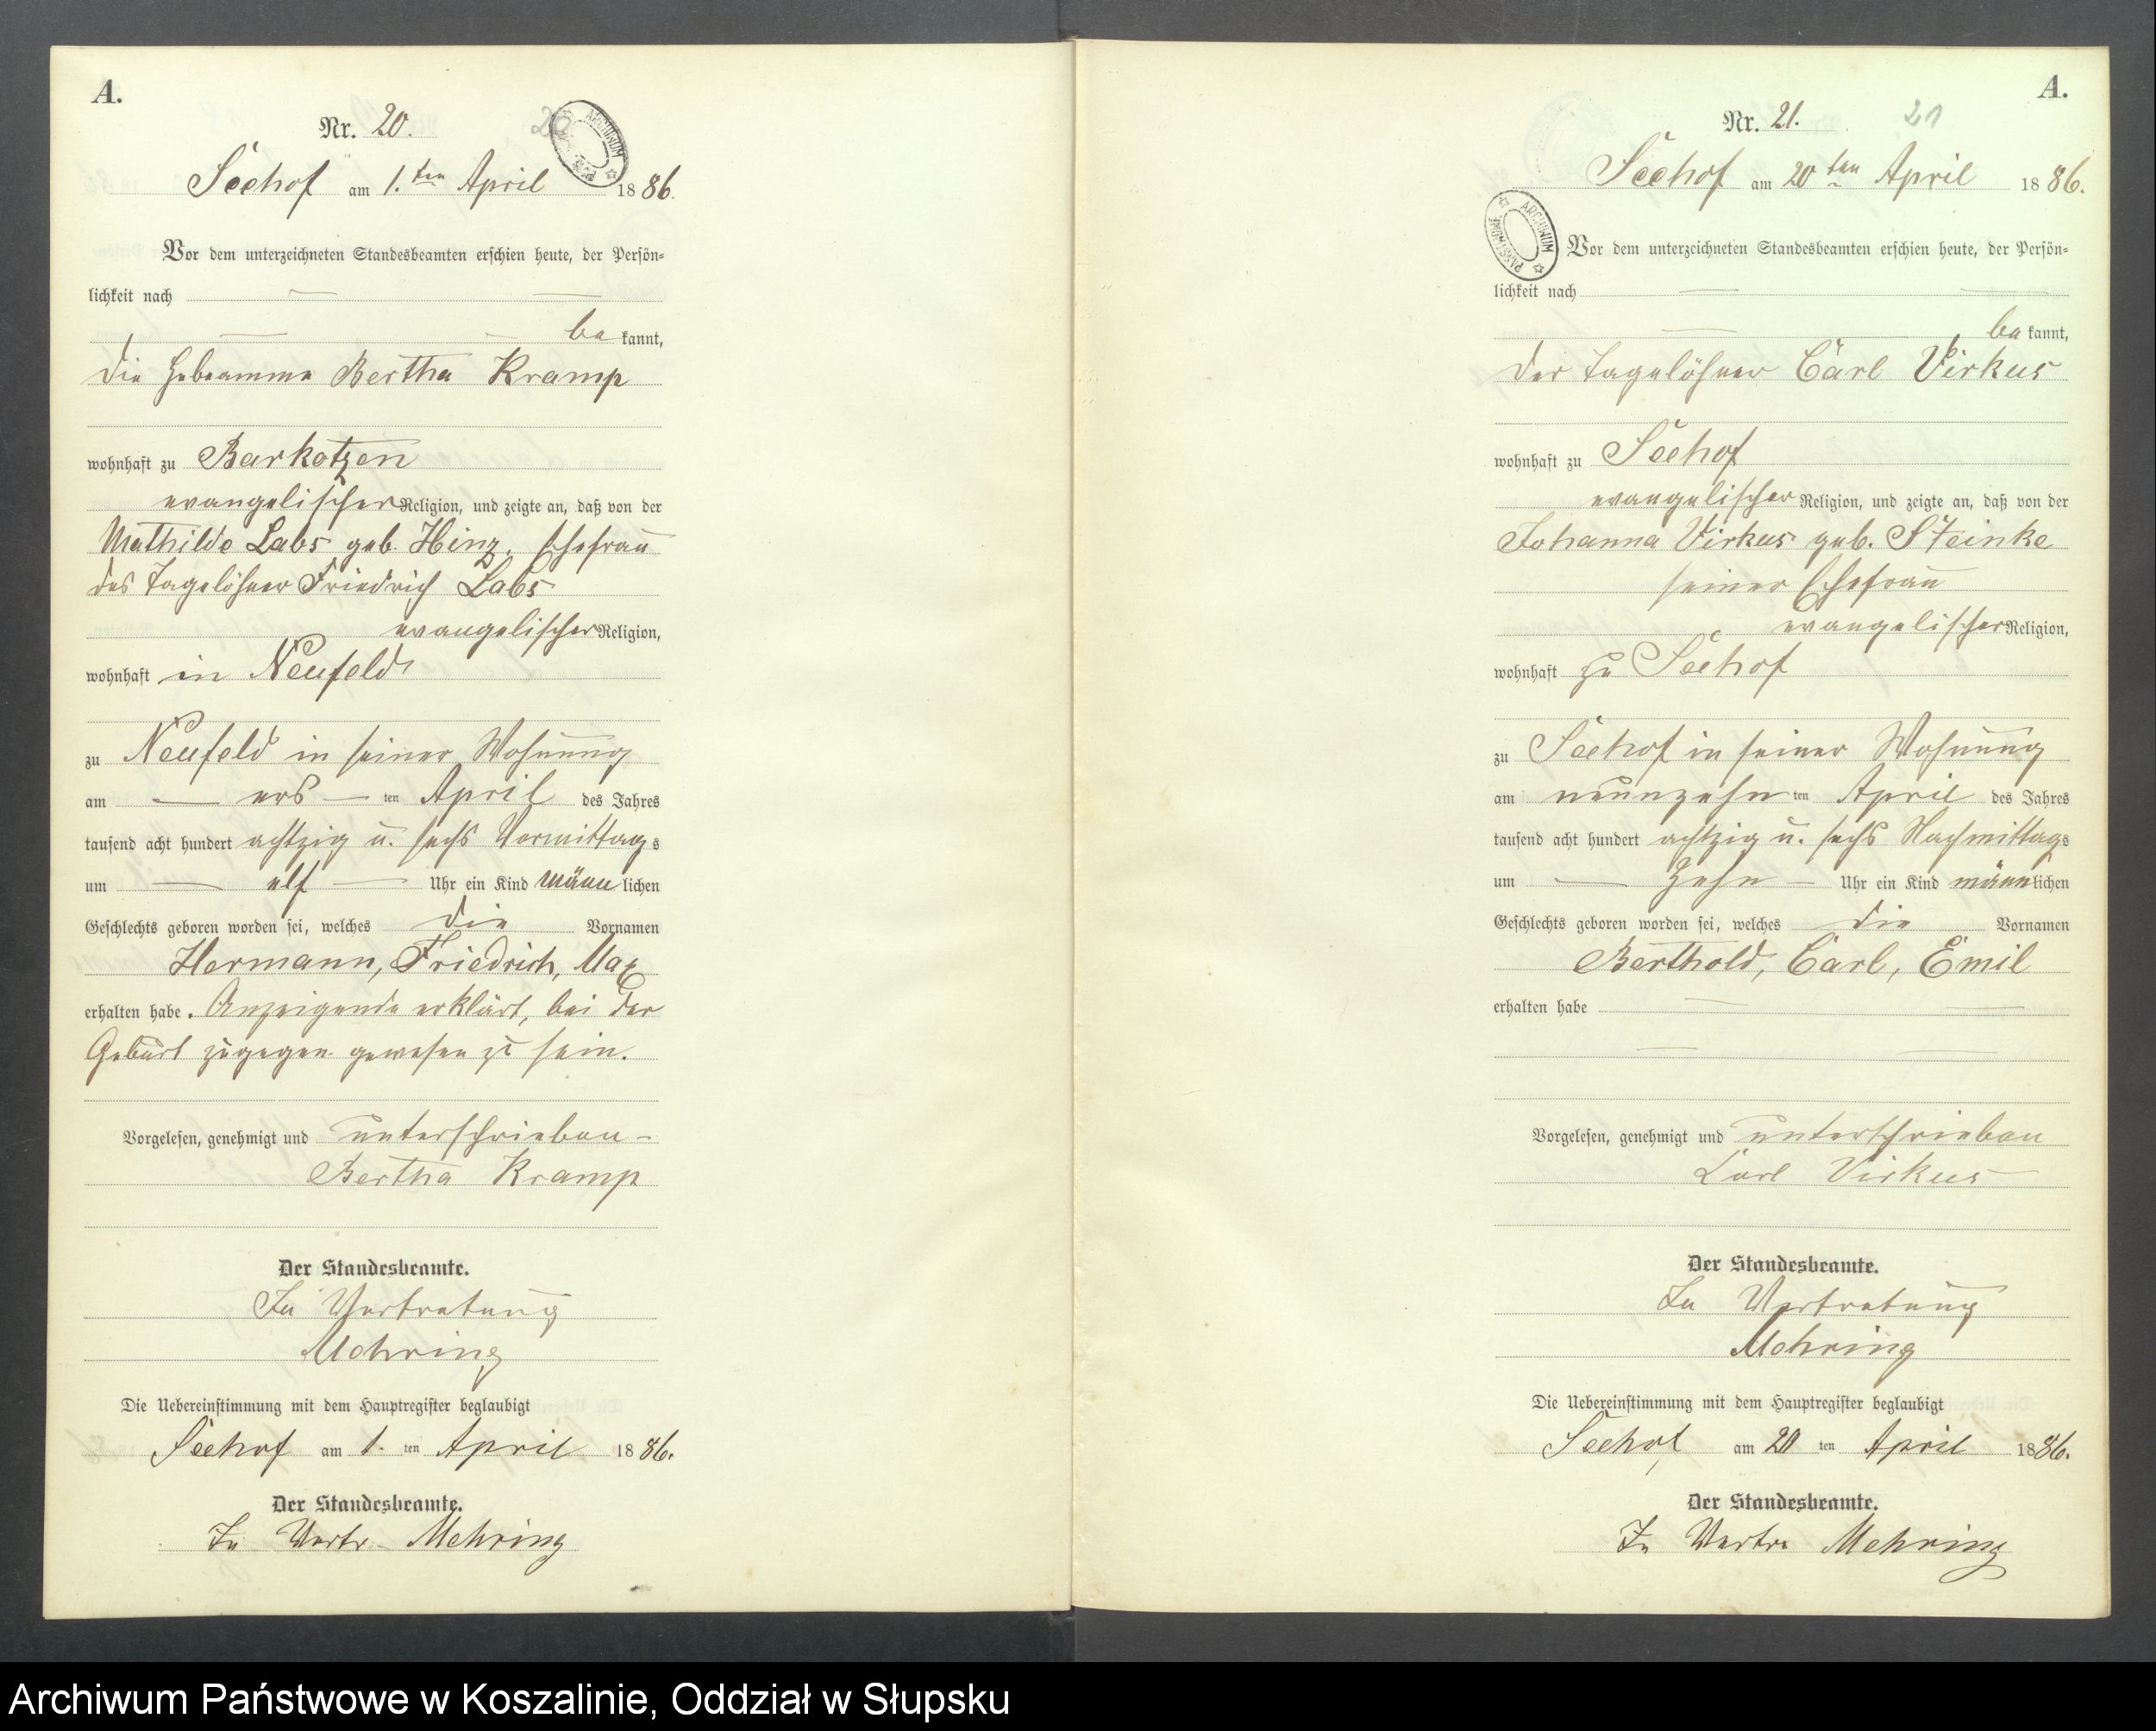 A.
Nr. 20.
20
Seehof am 1. ten April 1886.
Vor dem unterzeichneten Standesbeamten erschien heute, der Persön-
lichkeit nach
bekannt,
die Hebeamme Bertha Kramp
wohnhaft zu Barkotzen
evangelischer Religion, und zeigte an, daß von der
Mathilde Labs geb. Hinz, Ehefrau
des Tagelöhner Friedrich Labs
evangelischer Religion,
wohnhaft in Neufeld
zu Neufeld in seiner Wohnung
am — ers — ten April des Jahres
tausend acht hundert achtzig u. sechs Vormittags
um — elf — Uhr ein Kind männlichen
Geschlechts geboren worden sei, welches die Vornamen
Hermann, Friedrich, Max
erhalten habe. Anzeigende erklärt, bei der
Geburt zugegen gewesen zu sein.
Vorgelesen, genehmigt und unterschrieben -
Bertha Kramp
Der Standesbeamte.
In Vertretung
Mehring
Die Uebereinstimmung mit dem Hauptregister beglaubigt
Seehof am 1. ten April 1886.
Der Standesbeamte.
In Vertr. Mehring
A.
Nr. 21.
21
Seehof am 20 ten April 1886.
ARCHIWUM PAŃSTWOWE
Vor dem unterzeichneten Standesbeamten erschien heute, der Persön-
lichkeit nach
bekannt,
der Tagelöhner Carl Virkus
wohnhaft zu Seehof
evangelischer Religion, und zeigte an, daß von der
Johanna Virkus geb. Steinke
seiner Ehefrau
evangelischer Religion,
wohnhaft zu Seehof
zu Seehof in seiner Wohnung
am neunzehn ten April des Jahres
tausend acht hundert achtzig u. sechs Nachmittags
um — zehn — Uhr ein Kind männlichen
Geschlechts geboren worden sei, welches die Vornamen
Berthold, Carl, Emil
erhalten habe
Vorgelesen, genehmigt und unterschrieben
Carl Virkus
Der Standesbeamte.
In Vertretung
Mehring
Die Uebereinstimmung mit dem Hauptregister beglaubigt
Seehof am 20 ten April 1886.
Der Standesbeamte.
In Vertr. Mehring
Archiwum Państwowe w Koszalinie, Oddział w Słupsku